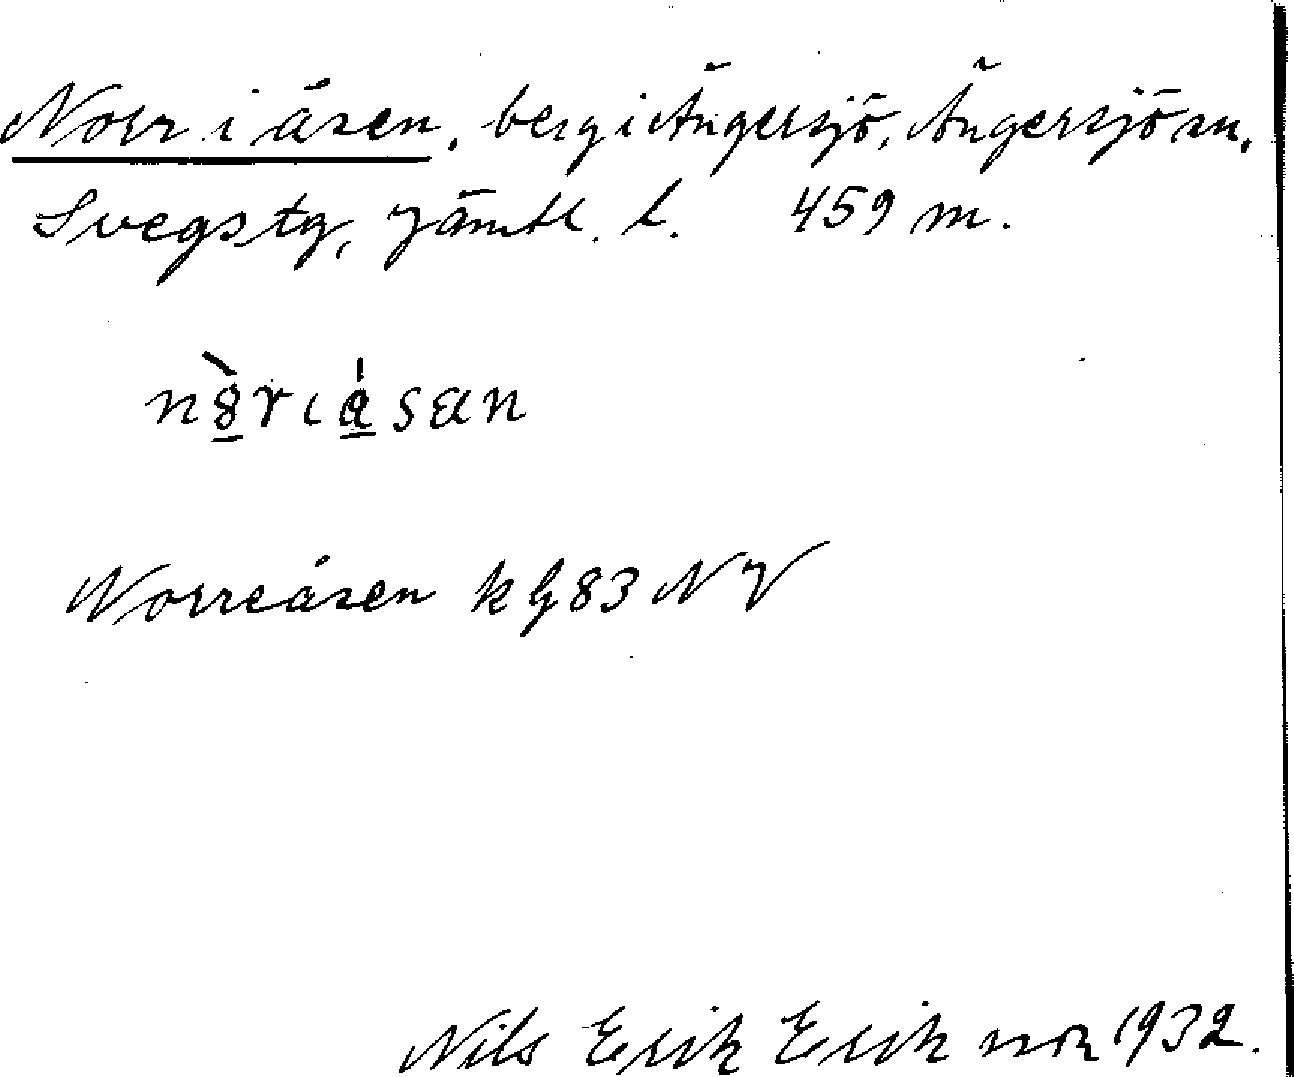 Norr i åsen, berg i Ängersjö, Ängersjö sn,
Svegs tg, Jämtl. l. 459 m.
nȣ̀rıásan
Norreåsen kg 83 NV
Nils Erik Eriksson 1932.